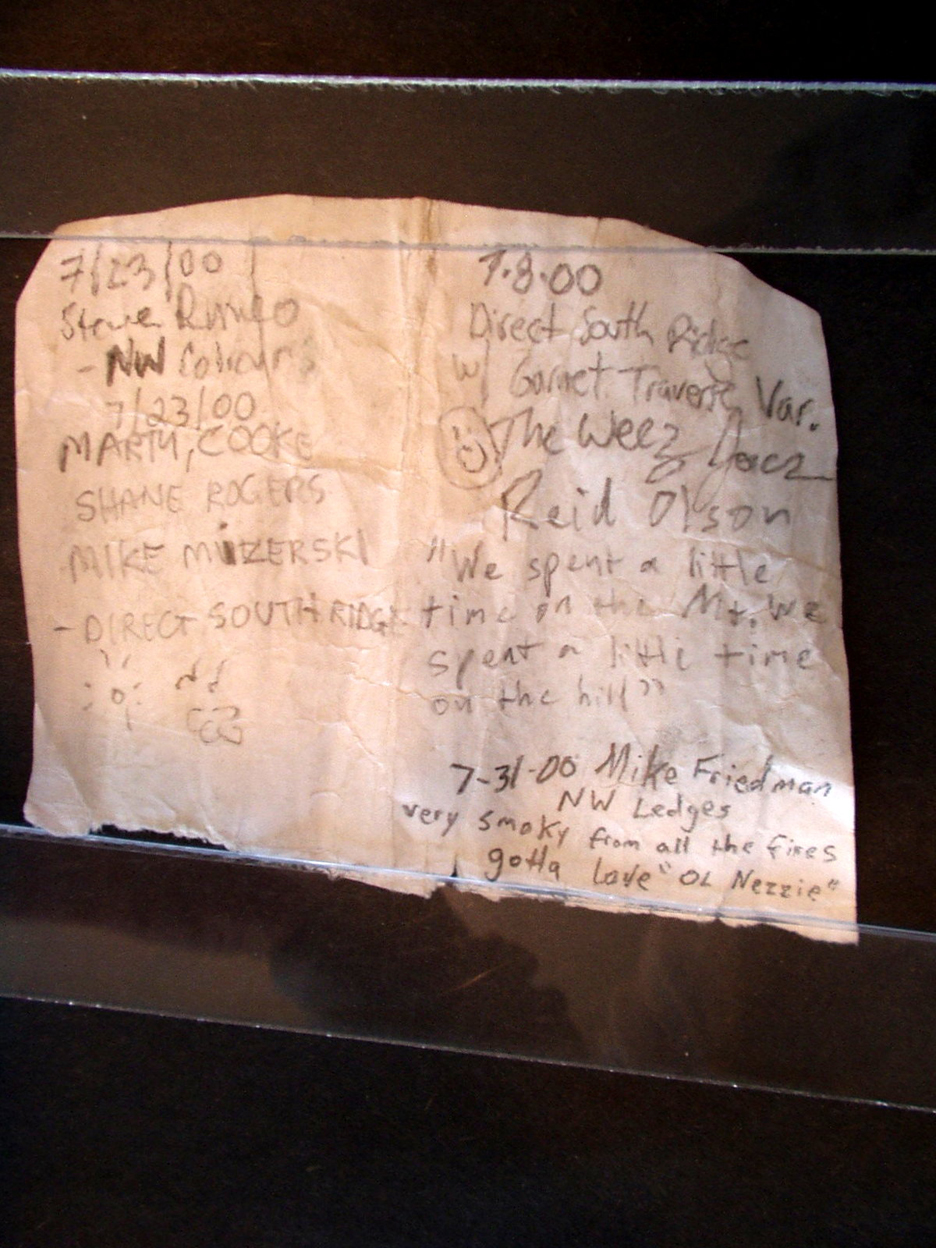 7/23/00
Steve
- NW
7/23/00
MARTY, COOKE
SHANE ROGERS
MIKE MIZERSKI
- DIRECT SOUTH RIDGE
7.8.00
Direct South Ridge
w/ Garnet Traverse Var.
The Weez
Reid Olson
"We spent a little
time on the Mt. We
spent a little time
on the hill"
7-31-00 Mike Friedman
NW Ledges
very smoky from all the fires
gotta Love "OL Nezzie"